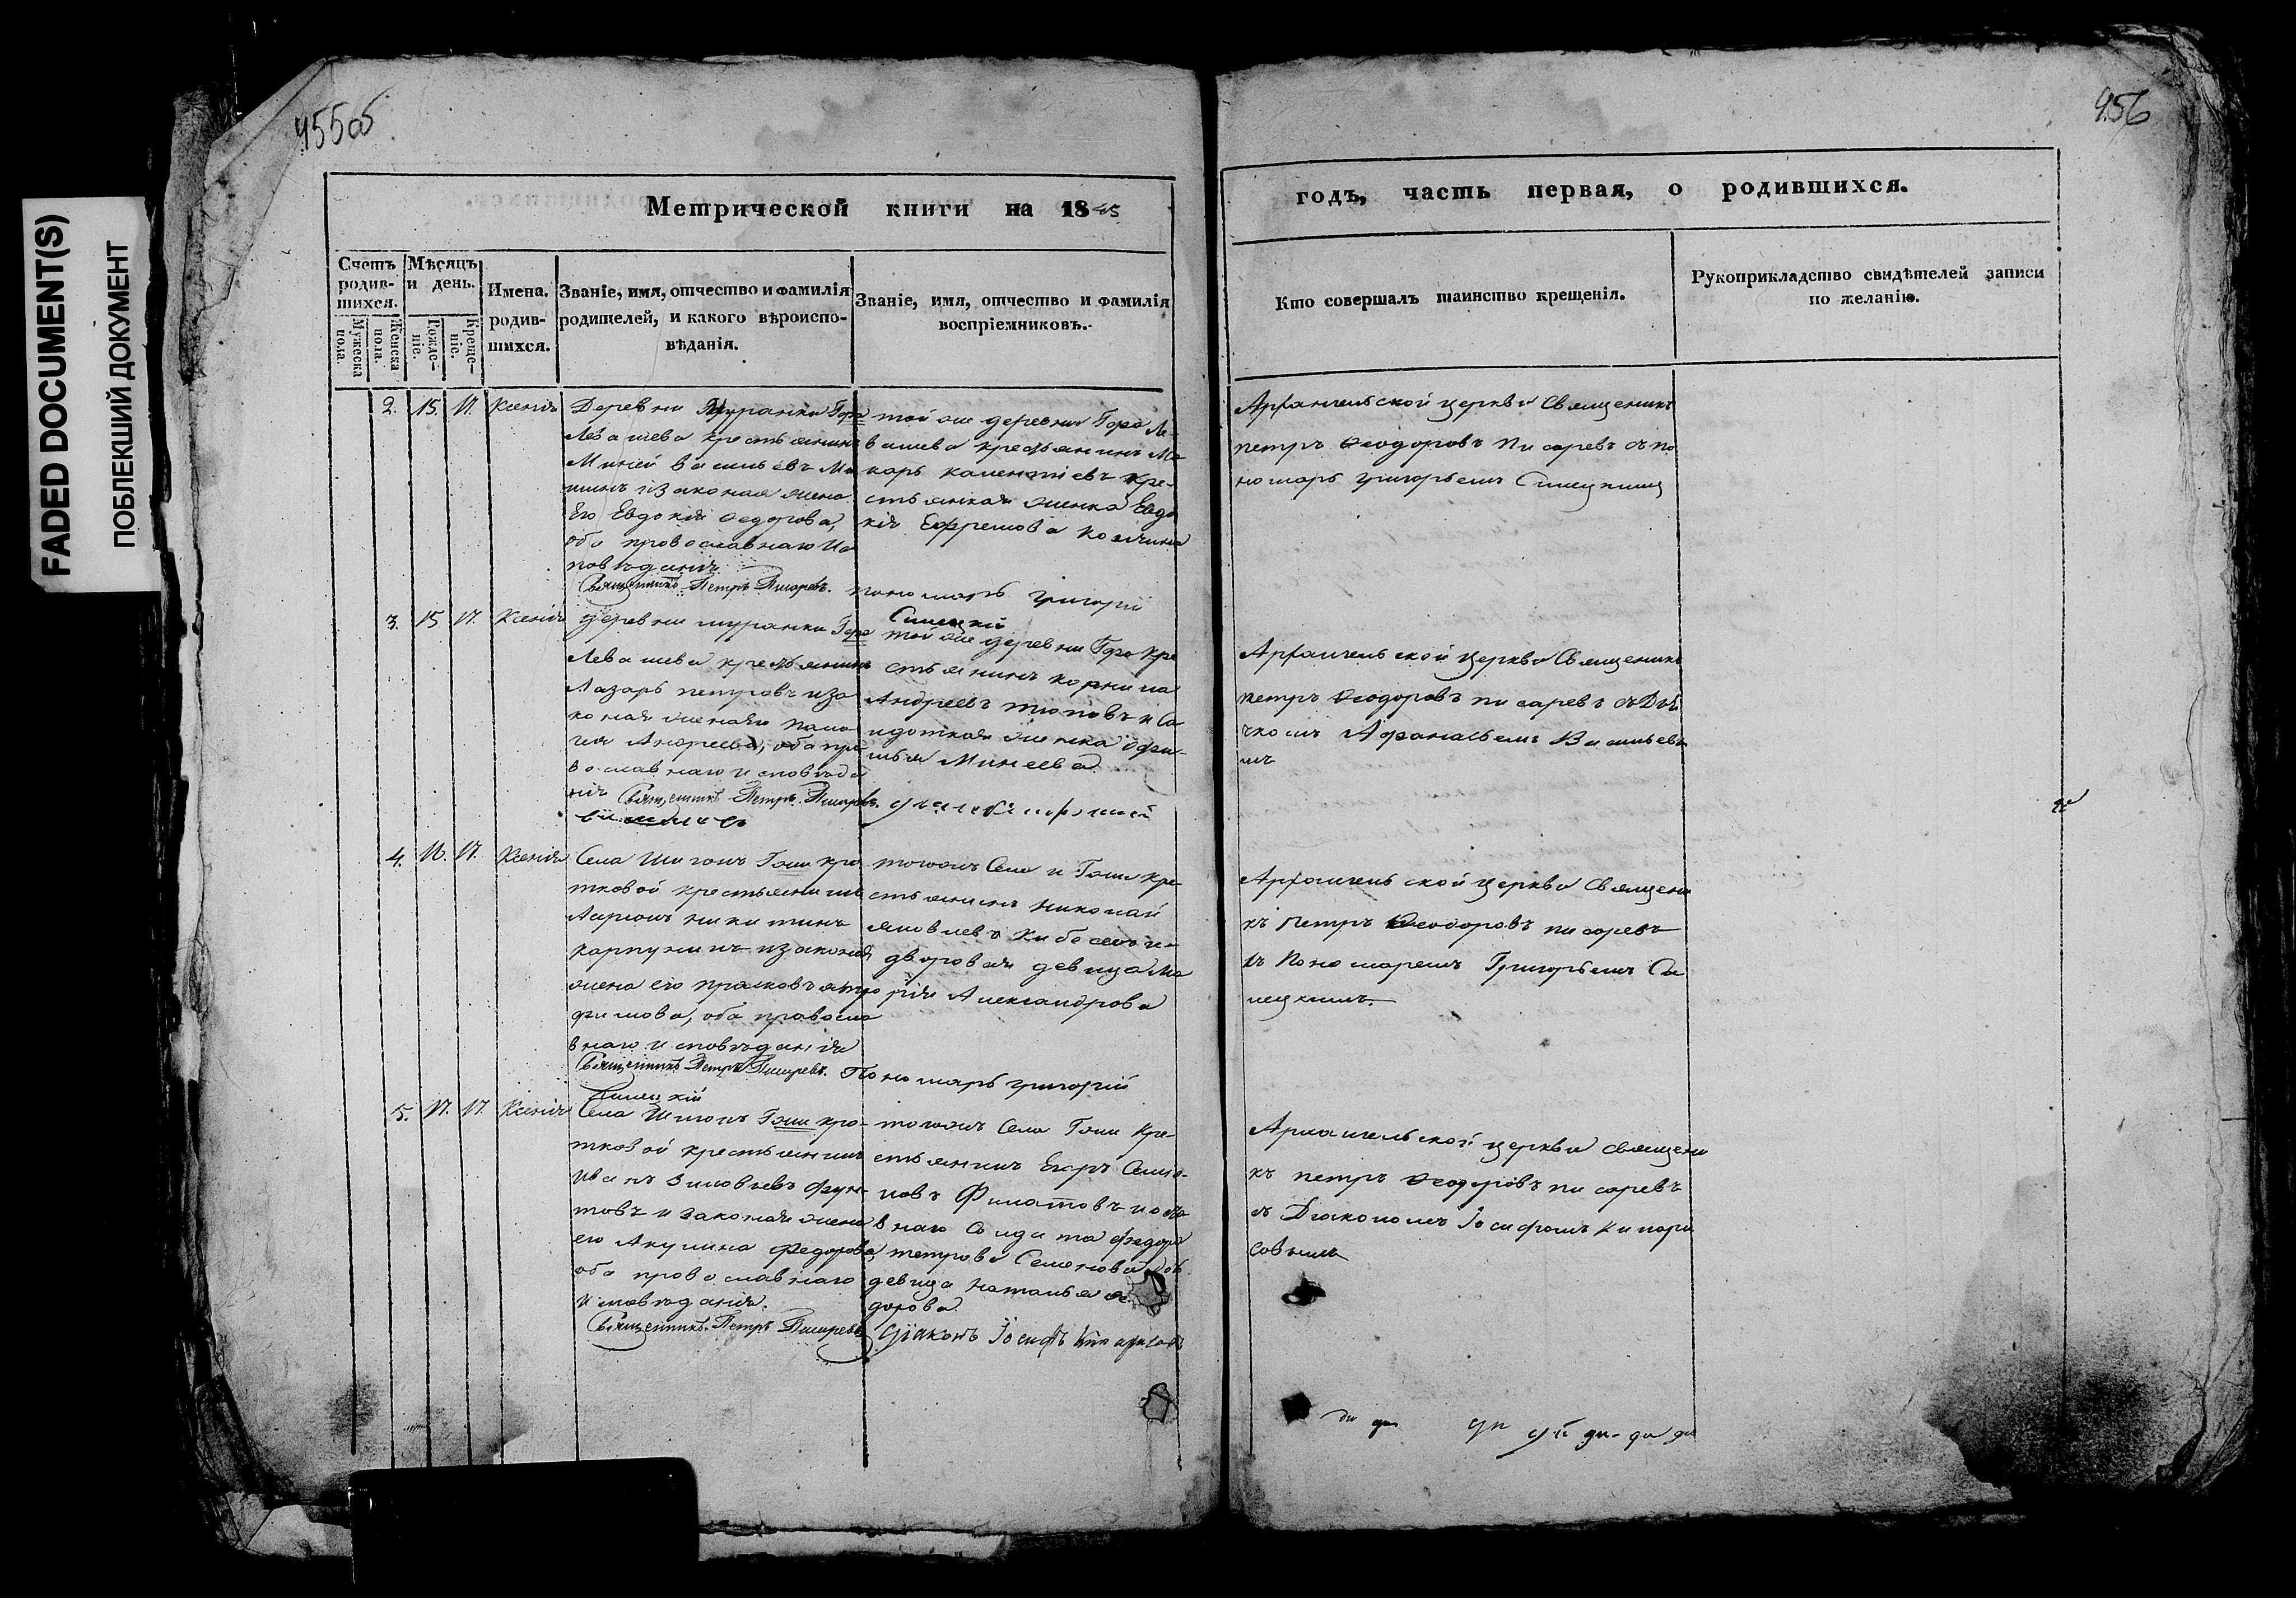 FADED DOCUMENT(S)
ПОБЛЕКШИЙ ДОКУМЕНТ
455об
456
Метрической книги на 1845
годъ, часть первая, о родившихся.
Счетъ родив-шихся.
Мужеска пола.
Женска пола.
Мѣсяцъ и день.
Рожде-ніе.
Креще-ніе.
Имена. родив-шихся.
Званіе, имя, отчество и фамилія
родителей, и какого вѣроиспо-
вѣданія.
Званіе, имя, отчество и фамилія
воспріемниковъ.
Кто совершалъ таинство крещенія.
Рукоприкладство свидѣтелей записи
по желанію.
2. 15. 17. Ксенія
Деревни Муранки Гора
Левашева крестьянинъ
Миней Васильевъ
законая жена
Его Евдокія Федорова,
оба провославнаго Ис
поведанія.
Священникъ Петръ Писаревъ.
той же деревни Гора Ле-
вашева крестьянинъ Ма
каръ
стьянская женка Евдо
кія Ефремова
пономарь Григорій
Синецкій
Архангельской церкви Священикъ
петръ Феодоровъ Писаревъ съ по
номарь григорьемъ Синецкимъ
3. 15 17. Ксенія
деревни муранки Гора
Левашева крестьянинъ
Лазарь петровъ иза
коная женаего
Андреева, оба пра
вославнаго исповеда
нія Священникъ Петръ Писаревъ.
той же деревни Гора кре
стьянинъ корнила
Андреевъ и Со
лдатская женка
Минеева
Архангельской церкви Священикъ
петръ Феодоровъ писаревъ съ Дья
чкомъ Афанасьемъ Васильевы
мъ
4. 16. 17. Ксенія
Села Шигонъ Гжи кро
тковой крестьянинъ
Ларионъ никитинъ
карпунинъ изаконая
жена его прасковья тро
фимова, оба правосла
внаго исповеданія
Священникъ Петръ Писаревъ.
тогожъ Села и Гжи кре-
стьянинъ николай
яковлевъ и-
дворовая девица Ма
рія Александрова
Пономарь григорій
Синецкій
Архангельской церкви Священи
къ Петръ Феодоровъ писаревъ
съ Пономаремъ Григорьемъ Си
нецкимъ.
5. 17. 17. Ксенія
Села Шигонъ Гжи кро-
тковой крестьянинъ
Иванъ Зиновьевъ
и законая жена
его Акулина Федорова,
оба православнаго
Исповеданія.
Священникъ Петръ Писаревъ
тогожъ Села Гжи Кре-
стьянинъ Егоръ Семио-
новъ Филатовъ
внаго Солдата федора
петрова Семенова
девица наталья Фе
дорова
Діаконъ Іосифъ Кипарисовъ
Архангельской церкви священи
къ петръ Феодоровъ писаревъ
съ Диакономъ Іосифомъ Кипари
совымъ